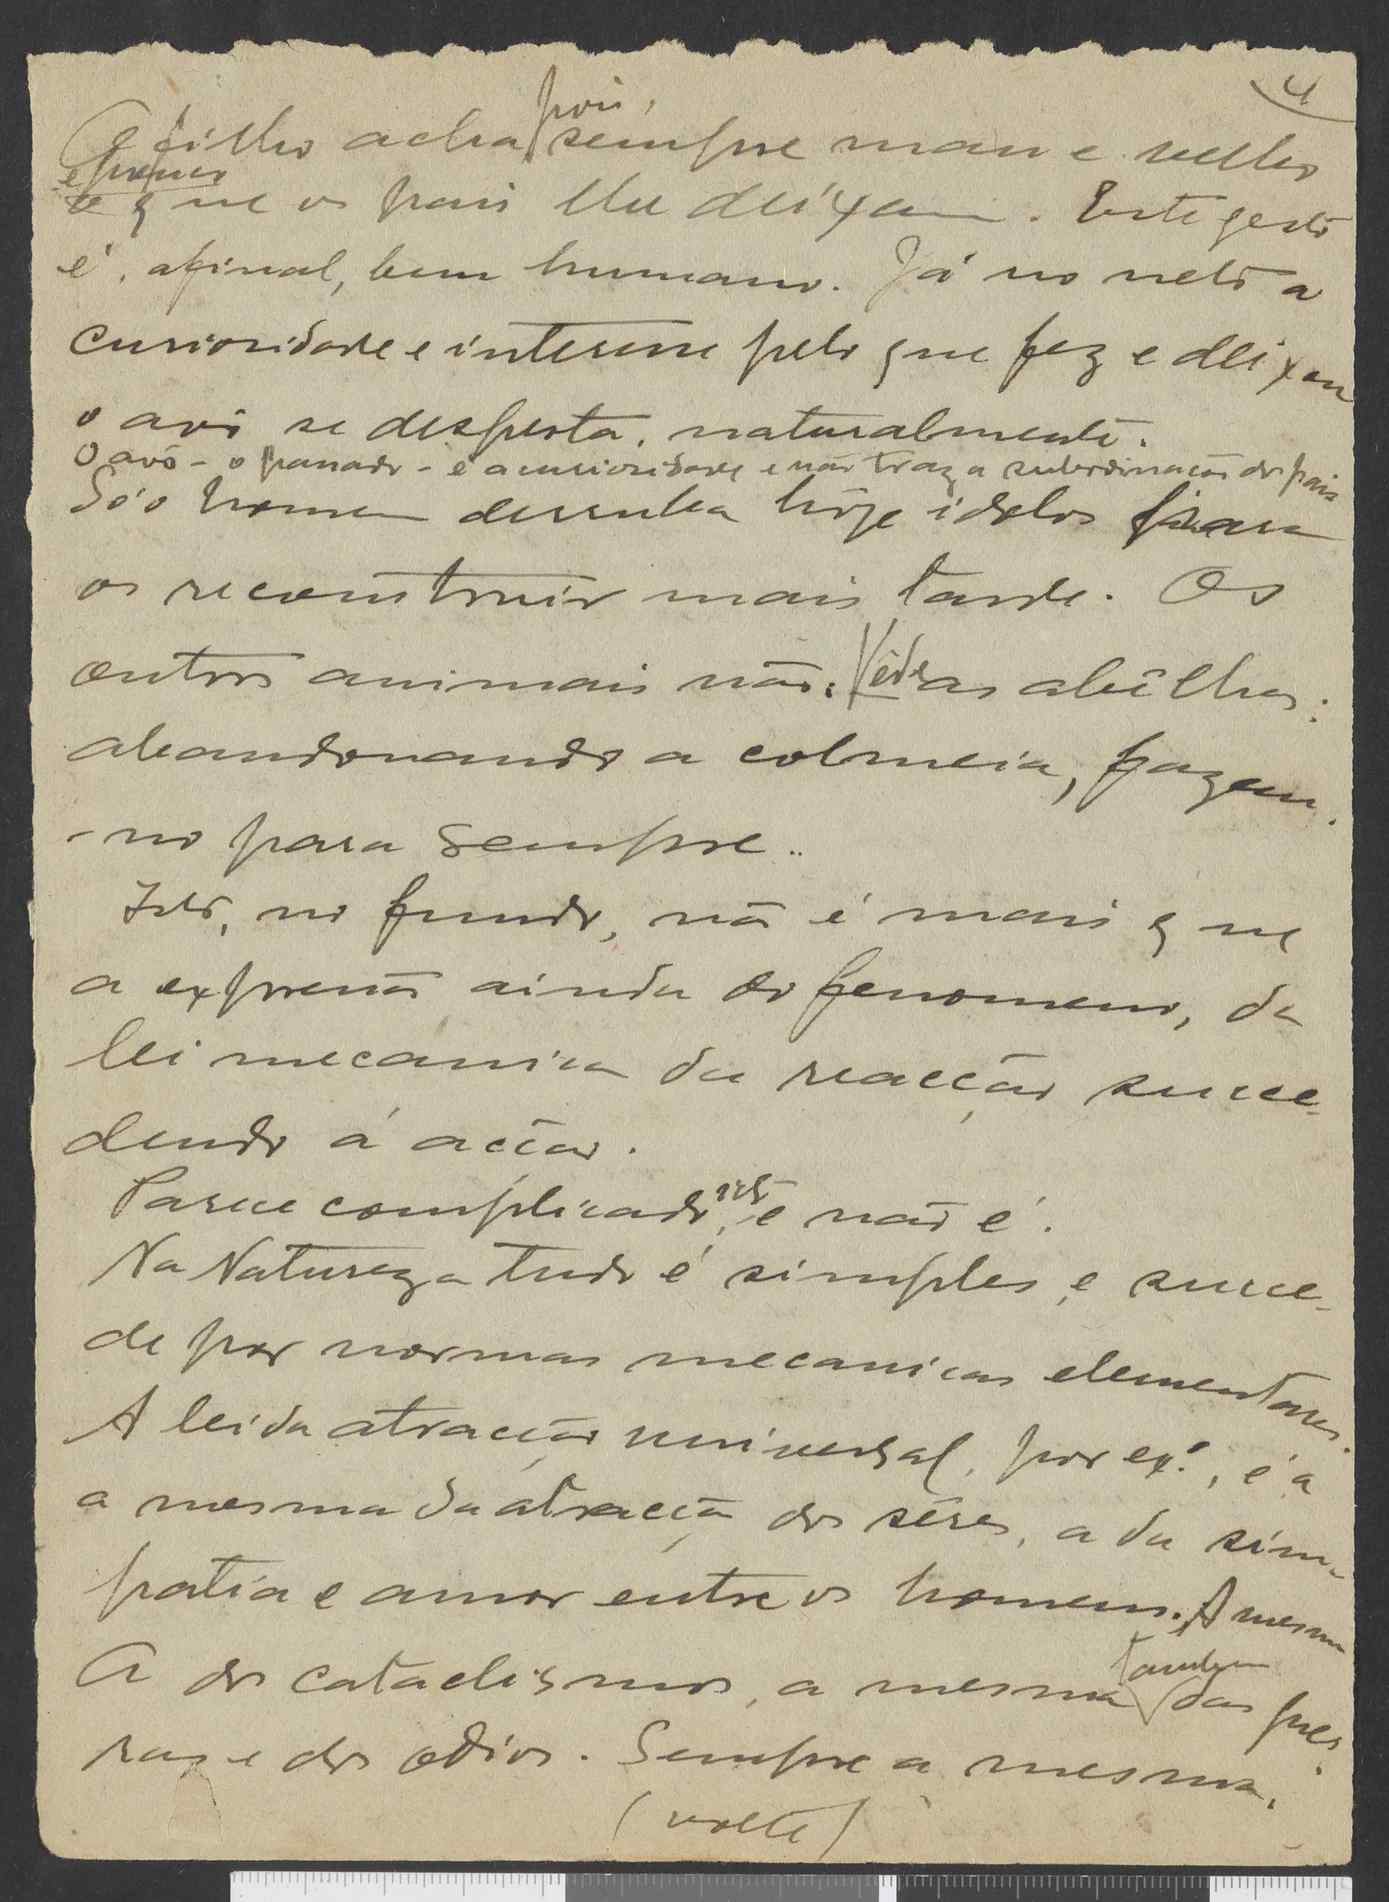 4
O filho acha, pois, sempre mau e velho
e pequeno
o que os pais lhe deixam. Este gesto
é, afinal, bem humano. Já no neto a
curiosidade e interesse pelo que fez e deixou
o avô se desperta, naturalmente.
O avô - o passado - é a curiosidade e não traz a subordinação dos pais
Só o homem derruba hoje idolos para
os reconstruir mais tarde. Os
outros animais não. Vêde as abêlhas:
abandonando a colmeia, fazem-
-no para sempre..
Isto, no fundo, não é mais que
a expressão ainda do fenomeno, da
lei mecanica da reacção succe-
dendo á acção.
Parece complicado, isto, e não é.
Na Natureza tudo é simples e succe-
de por normas mecanicas elementares.
A lei da atracção universal, por ex:, é a
a mesma da atracção dos sêres, a da sim-
patia e amor entre os homens. A mesma
A dos cataclismos, a mesma tambem das guer-
ras e dos odios. Sempre a mesma.
(volte)